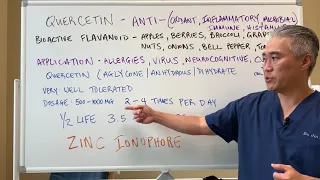 QUERCETIN - ANTI- (OXIDANT, INFLAMMATORY, MICROBIAL
IMMUNE, HISTAMINE
BIOACTIVE FLAVANOID - APPLES, BERRIES, BROCCOLI, GRAPES
NUTS, ONIONS, BELL PEPPER,
APPLICATION - ALLERGIES, VIRUS, NEUROCOGNITIVE,
QUERCETIN (AGLYCONE | ANHYDROUS | DIHYDRATE
VERY WELL TOLERATED
DOSAGE: 500-1000MG 2-4 TIMES PER DAY
1/2 LIFE 3.5
ZINC IONOPHORE